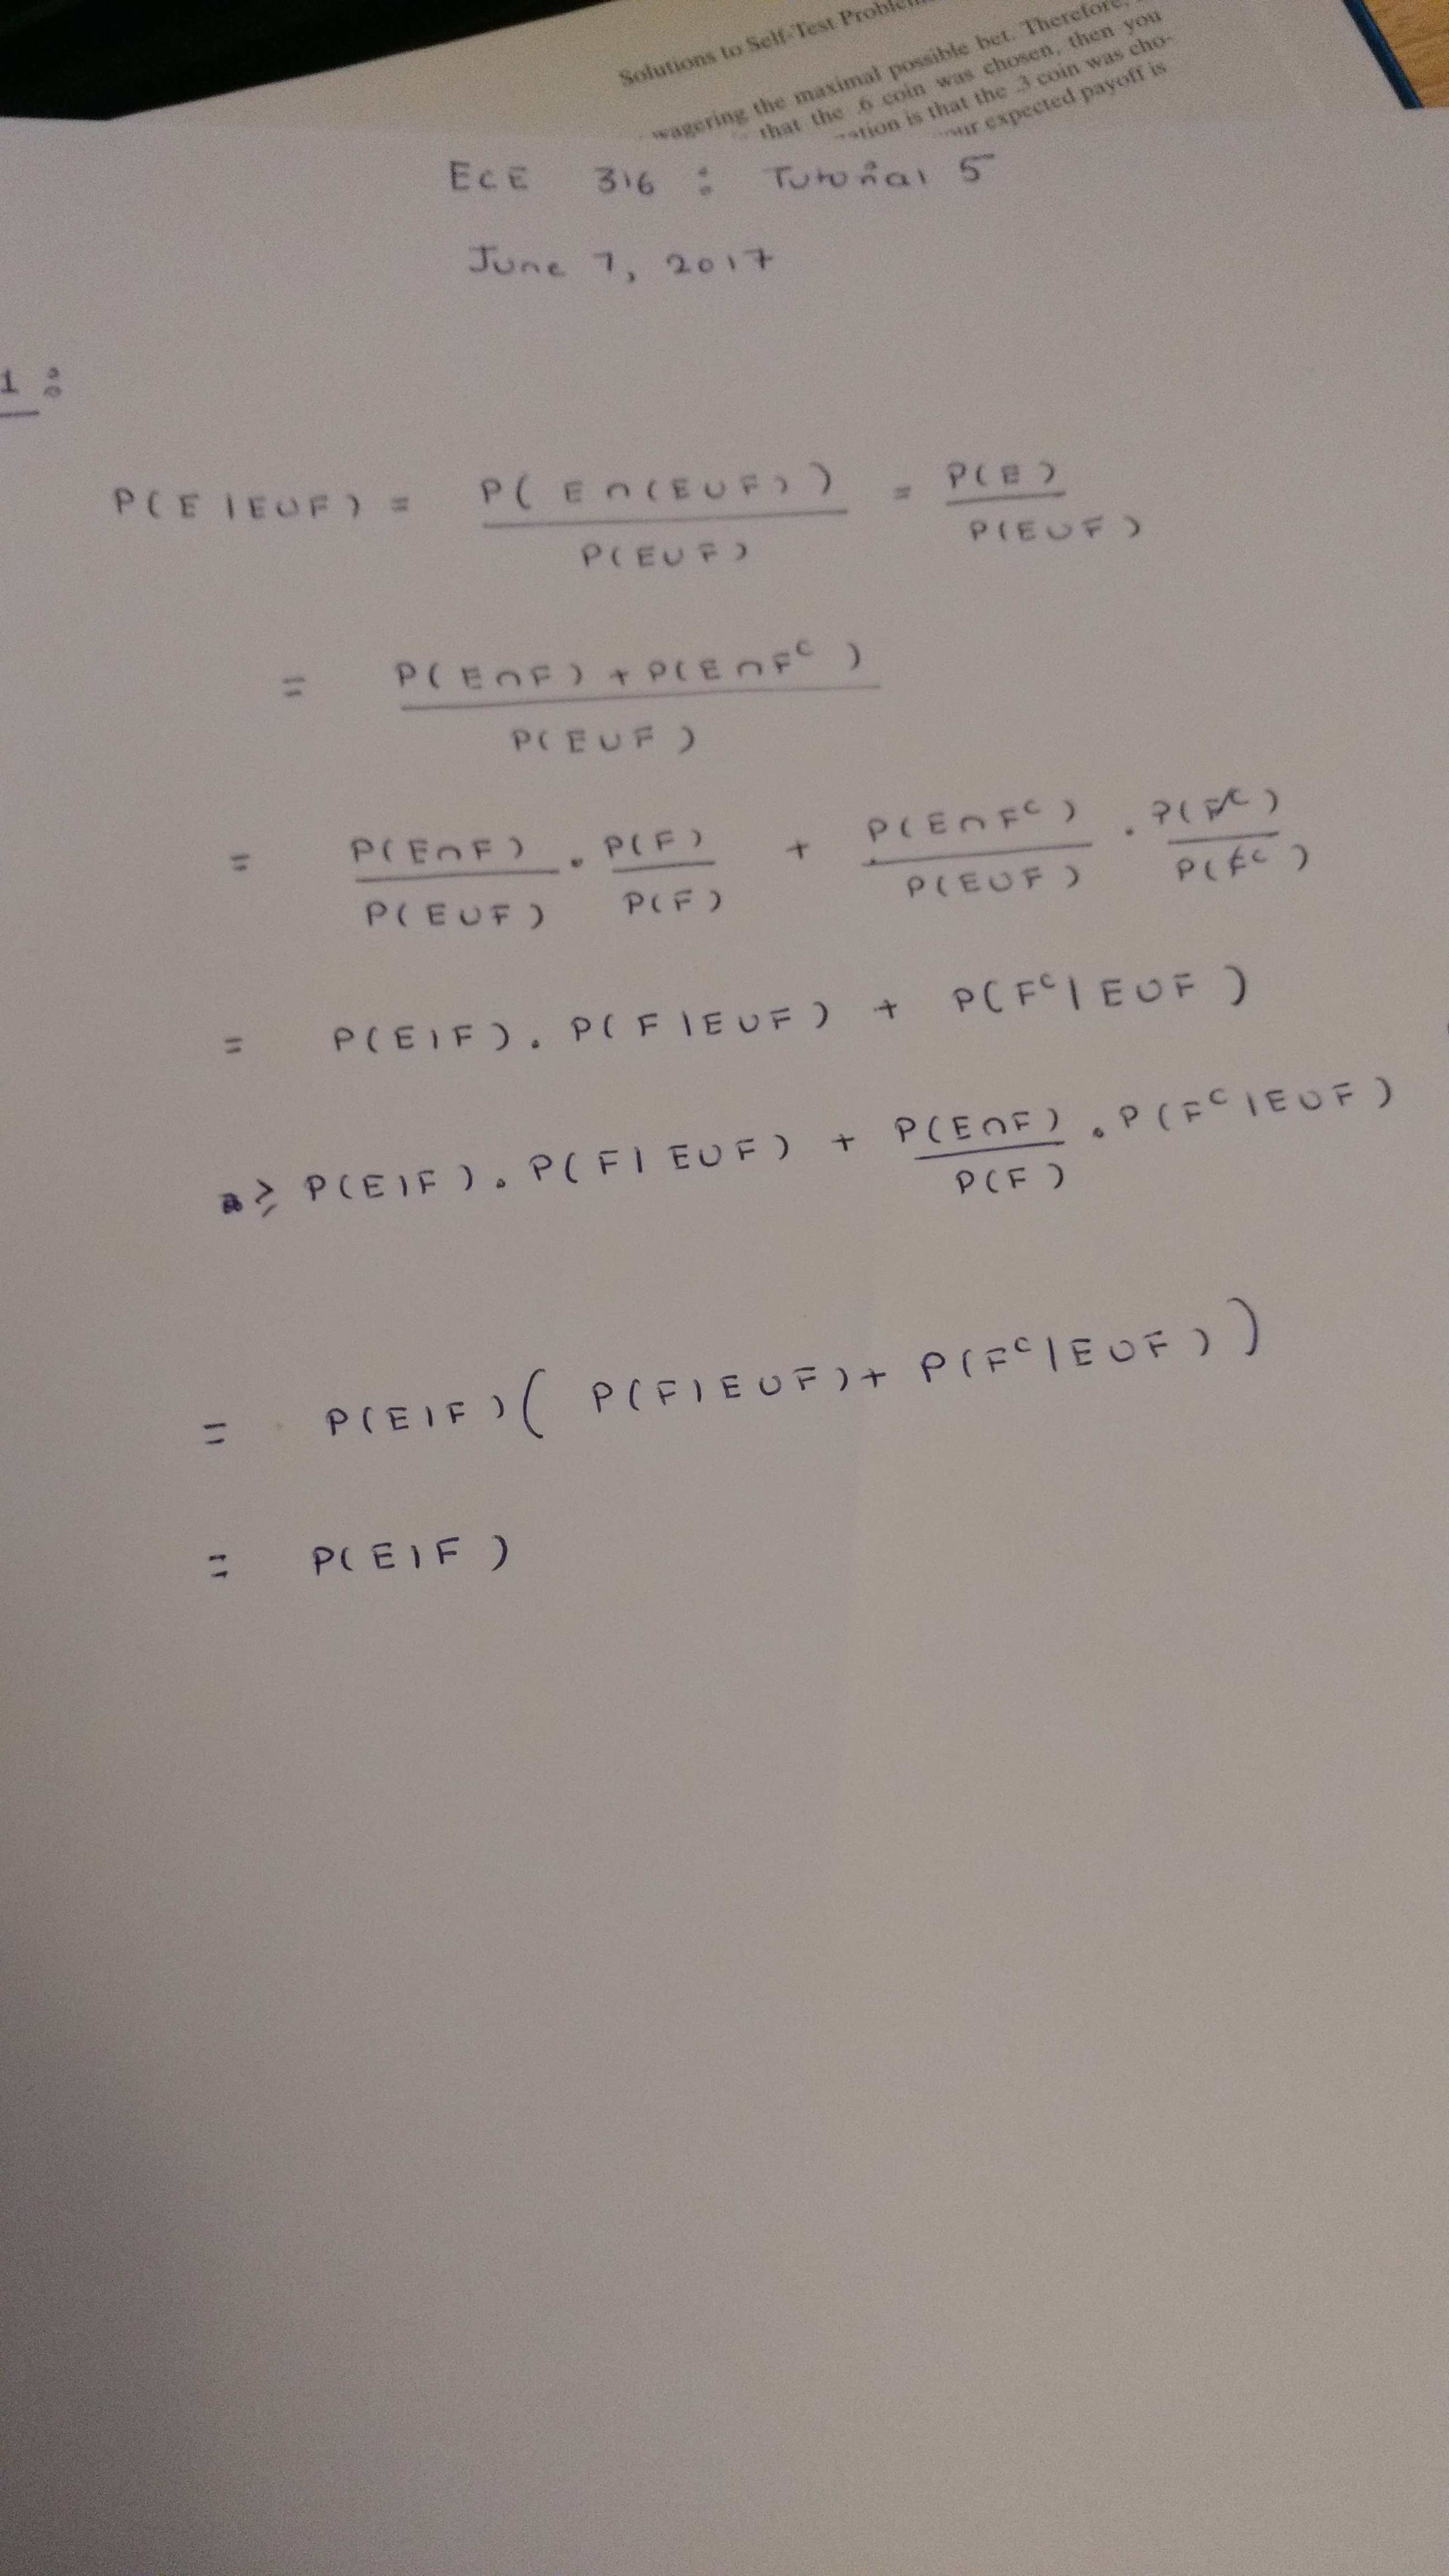 Solutions to Self-Test
wagering the maximal possible bet. Therefore,
that the .6 coin was chosen, then you
is that the .3 coin was cho-
expected payoff is
ECE 316 : Tutorial 5
June 7, 2017
1 :
P(E|E∪F) = P(E∩(E∪F)) / P(E∪F) = P(E) / P(E∪F)
= P(E∩F) + P(E∩F^c) / P(E∪F)
= P(E∩F) / P(E∪F) . P(F) / P(F) + P(E∩F^c) / P(E∪F) . P(F^c) / P(F^c)
= P(E|F) . P(F|E∪F) + P(F^c|E∪F)
≥ P(E|F) . P(F|E∪F) + P(E∩F) / P(F) . P(F^c|E∪F)
= P(E|F) ( P(F|E∪F) + P(F^c|E∪F) )
= P(E|F)